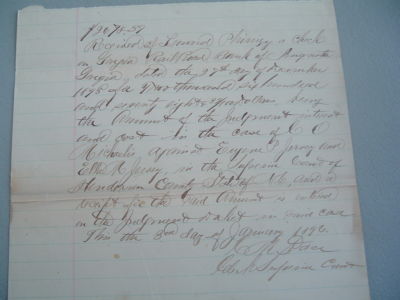 $2678.57
Received of Leonard Phinizy a check
on Georgia Rail Road Bank of Augusta
Georgia, dated the 27th day of December
1895 for Two thousand Six hundred
and seventy eight & dollars, being
the Amount of the Judgment interest
and cost in the case of C C
Michaelis, against Eugene Jersey and
Ella M Jersey, in the Supreme Court of
Henderson County State of NC, and a
receipt for the said Amount is entered
in the Judgment Docket in said case
This the 3rd day of January 1896.
C M Pace
Clerk Supreme Court